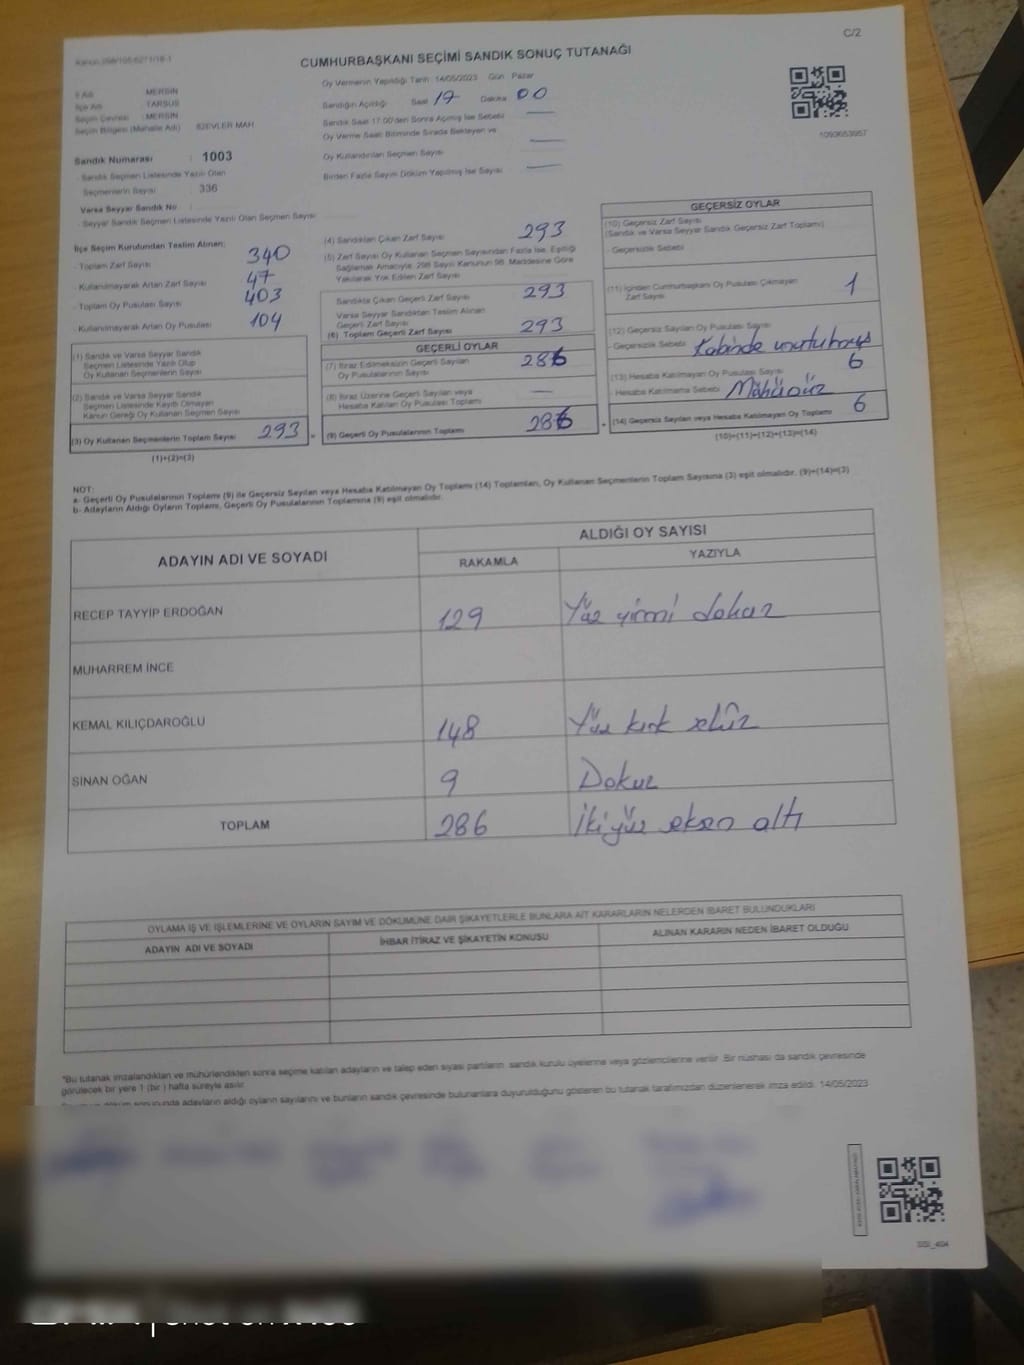 C/2
CUMHURBAŞKANI SEÇİMİ SANDIK SONUÇ TUTANAĞI
İl Adı : MERSİN
İlçe Adı : TARSUS
Seçim Çevresi : MERSİN
Seçim Bölgesi (Mahalle Adı) : 82EVLER MAH
Sandık Numarası : 1003
- Sandık Seçmen Listesinde Yazılı Olan
Seçmenlerin Sayısı : 336
Varsa Seyyar Sandık No
- Seyyar Sandık Seçmen Listesinde Yazılı Olan Seçmen Sayısı
Oy Vermenin Yapıldığı Tarih : 14/05/2023 Gün : Pazar
Sandığın Açıldığı Saat 17 Dakika 00
Sandık Saat 17:00'den Sonra Açılmış İse Sebebi
Oy Verme Saati Bitiminde Sırada Bekleyen ve
Oy Kullandırılan Seçmen Sayısı
Birden Fazla Sayım Döküm Yapılmış İse Sayısı
1093653957
İlçe Seçim Kurulundan Teslim Alınan;
- Toplam Zarf Sayısı 340
- Kullanılmayarak Artan Zarf Sayısı 47
- Toplam Oy Pusulası Sayısı 403
- Kullanılmayarak Artan Oy Pusulası 104
(1) Sandık ve Varsa Seyyar Sandık
Seçmen Listesinde Yazılı Olup
Oy Kullanan Seçmenlerin Sayısı
(2) Sandık ve Varsa Seyyar Sandık
Seçmen Listesinde Kayıtlı Olmayan
Kanun Gereği Oy Kullanan Seçmen Sayısı
(3) Oy Kullanan Seçmenlerin Toplam Sayısı 293 =
(1)+(2)=(3)
(4) Sandıktan Çıkan Zarf Sayısı 293
(5) Zarf Sayısı Oy Kullanan Seçmen Sayısından Fazla İse, Eşitliği
Sağlamak Amacıyla, 298 Sayılı Kanunun 98. Maddesine Göre
Yakılarak Yok Edilen Zarf Sayısı
Sandıkta Çıkan Geçerli Zarf Sayısı 293
Varsa Seyyar Sandıktan Teslim Alınan
Geçerli Zarf Sayısı
(6) Toplam Geçerli Zarf Sayısı 293
GEÇERLİ OYLAR
(7) İtiraz Edilmeksizin Geçerli Sayılan
Oy Pusulalarının Sayısı 286
(8) İtiraz Üzerine Geçerli Sayılan veya
Hesaba Katılan Oy Pusulası Toplamı
(9) Geçerli Oy Pusulalarının Toplamı 286 +
GEÇERSİZ OYLAR
(10) Geçersiz Zarf Sayısı
(Sandık ve Varsa Seyyar Sandık Geçersiz Zarf Toplamı)
- Geçersizlik Sebebi
(11) İçinden Cumhurbaşkanı Oy Pusulası Çıkmayan
Zarf Sayısı 1
(12) Geçersiz Sayılan Oy Pusulası Sayısı
- Geçersizlik Sebebi Kabinde
(13) Hesaba Katılmayan Oy Pusulası Sayısı 6
- Hesaba Katılmama Sebebi Mühürsüz
(14) Geçersiz Sayılan veya Hesaba Katılmayan Oy Toplamı 6
(10)+(11)+(12)+(13)=(14)
NOT:
a- Geçerli Oy Pusulalarının Toplamı (9) ile Geçersiz Sayılan veya Hesaba Katılmayan Oy Toplamı (14) Toplamları, Oy Kullanan Seçmenlerin Toplam Sayısına (3) eşit olmalıdır. (9)+(14)=(3)
b- Adayların Aldığı Oyların Toplamı, Geçerli Oy Pusulalarının Toplamına (9) eşit olmalıdır.
ADAYIN ADI VE SOYADI
ALDIĞI OY SAYISI
RAKAMLA YAZIYLA
RECEP TAYYİP ERDOĞAN 129 Yüz yirmi dokuz
MUHARREM İNCE
KEMAL KILIÇDAROĞLU 148 Yüz kırk sekiz
SİNAN OĞAN 9 Dokuz
TOPLAM 286 İkiyüz seksen altı
OYLAMA İŞ VE İŞLEMLERİNE VE OYLARIN SAYIM VE DÖKÜMÜNE DAİR ŞİKAYETLERLE BUNLARA AİT KARARLARIN NELERDEN İBARET BULUNDUKLARI
ADAYIN ADI VE SOYADI İHBAR İTİRAZ VE ŞİKAYETİN KONUSU ALINAN KARARIN NEDEN İBARET OLDUĞU
"Bu tutanak imzalandıktan ve mühürlendikten sonra seçime katılan adayların ve talep eden siyasi partilerin sandık kurulu üyelerine veya gözlemcilerine verilir. Bir nüshası da sandık çevresinde
görülecek bir yere 1 (bir ) hafta süreyle asılır.
adayların aldığı oyların sayılarını ve bunların sandık çevresinde bulunanlara duyurulduğunu gösteren bu tutanak tarafımızdan düzenlenerek imza edildi. 14/05/2023